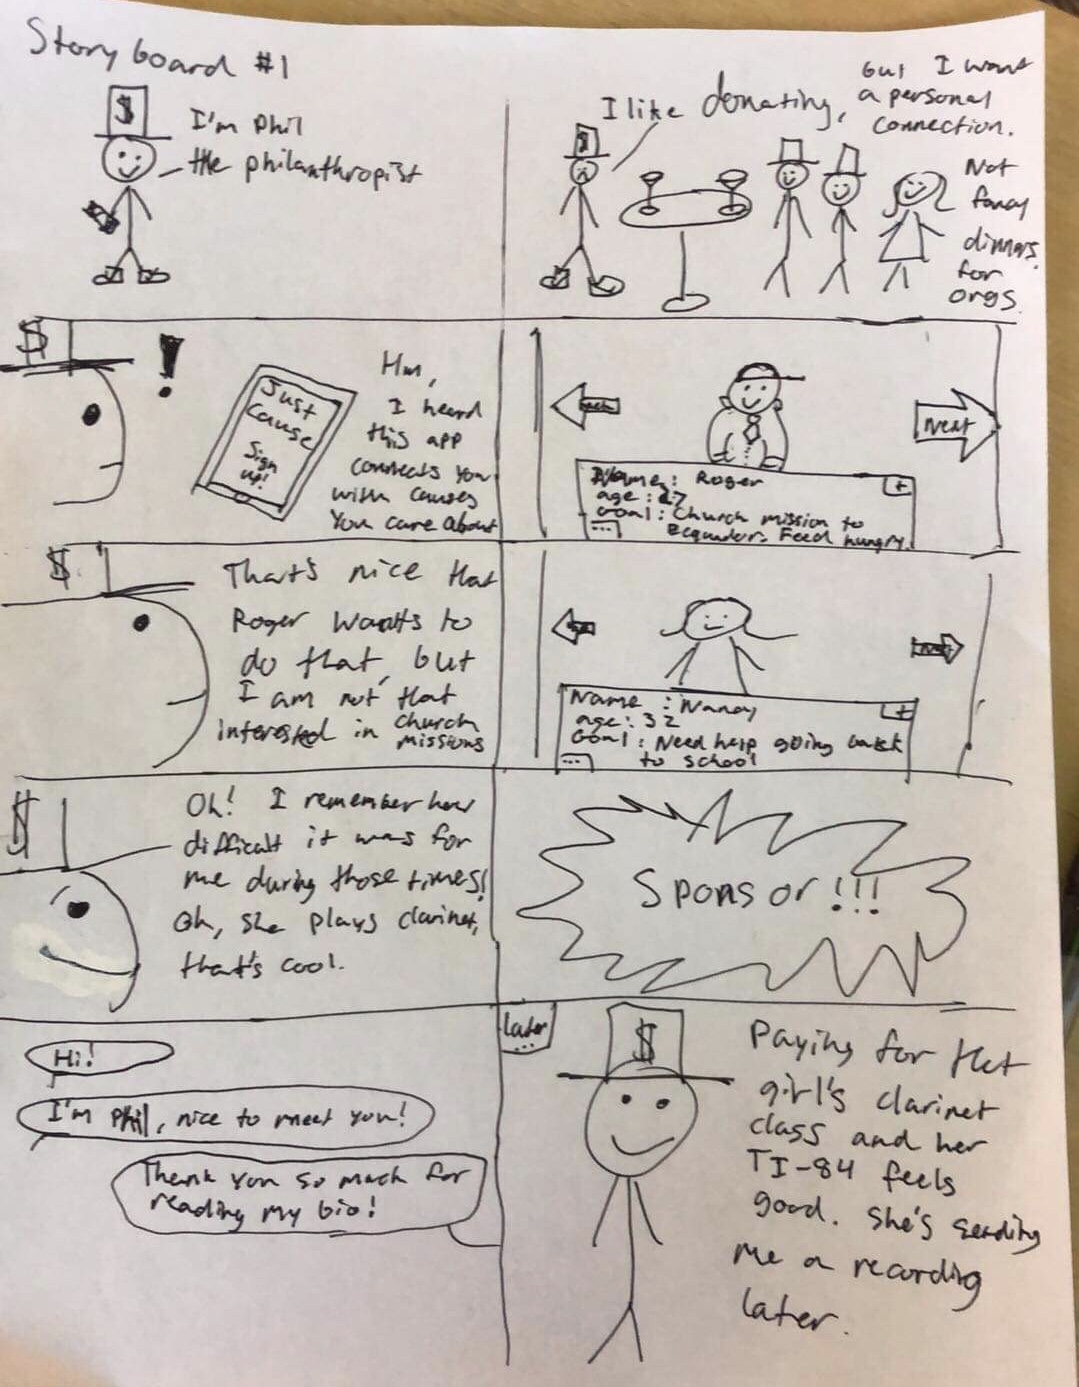 Storyboard #1
$
I'm Phil
the philanthropist
I like donating,
but I want
a personal
connection.
Not
fancy
dinners
for
orgs.
$
$
!
Just
Cause
Sign
up!
Hm,
I heard
this app
connects you
with causes
you care about
Next
Name: Roger
age: 27
Goal: Church mission to
Ecquador. Feed hungry.
+
...
$
That's nice that
Roger wants to
do that, but
I am not that
interested in church
missions
Name: Nancy
age: 32
Goal: Need help going back
to school
+
...
$
Oh! I remember how
difficult it was for
me during those times!
Oh, she plays clarinet,
that's cool.
Sponsor!!!
Hi!
I'm Phil, nice to meet you!
Thank you so much for
reading my bio!
later
...
$
Paying for that
girl's clarinet
class and her
TI-84 feels
good. She's sending
me a recording
later.